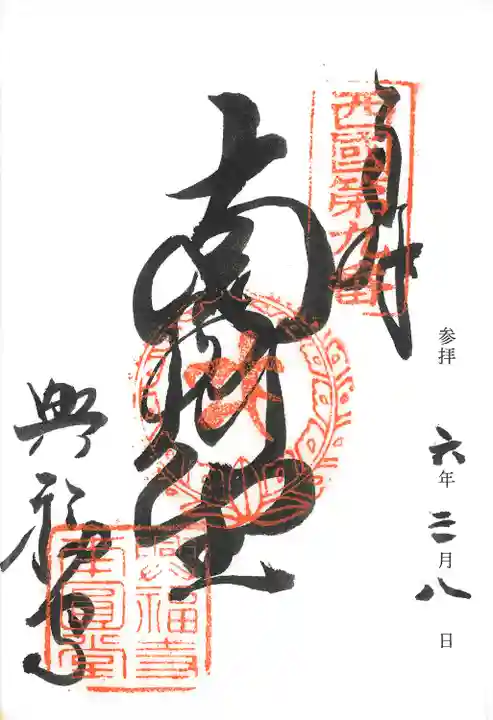 参拝 六年三月八日
西國第九番
南圓堂
興福寺
興福寺
南圓堂